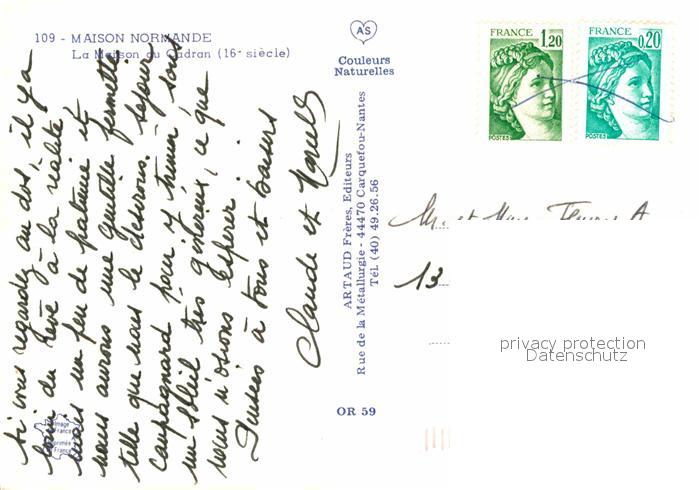 109 - MAISON NORMANDE
La Maison du Cadran (16e siècle)
AS
Couleurs
Naturelles
FRANCE
1,20
POSTES
FRANCE
0,20
POSTES
Si vous regardez au dos, il y a
loin du Rêve à la réalité
mais un peu de patience et
nous aurons une gentille fermette
telle que nous le désirons. Séjour
campagnard pour y trimer sous
un soleil très généreux, ce que
nous n'osions espérer.
Pensées à tous et baisers
Claude et
ARTAUD Frères, Editeurs
Rue de la Métallurgie - 44470 Carquefou-Nantes
Tél. (40) 49.26.56
OR 59
Image
de France
Imprimée
en France
13
privacy protection
Datenschutz